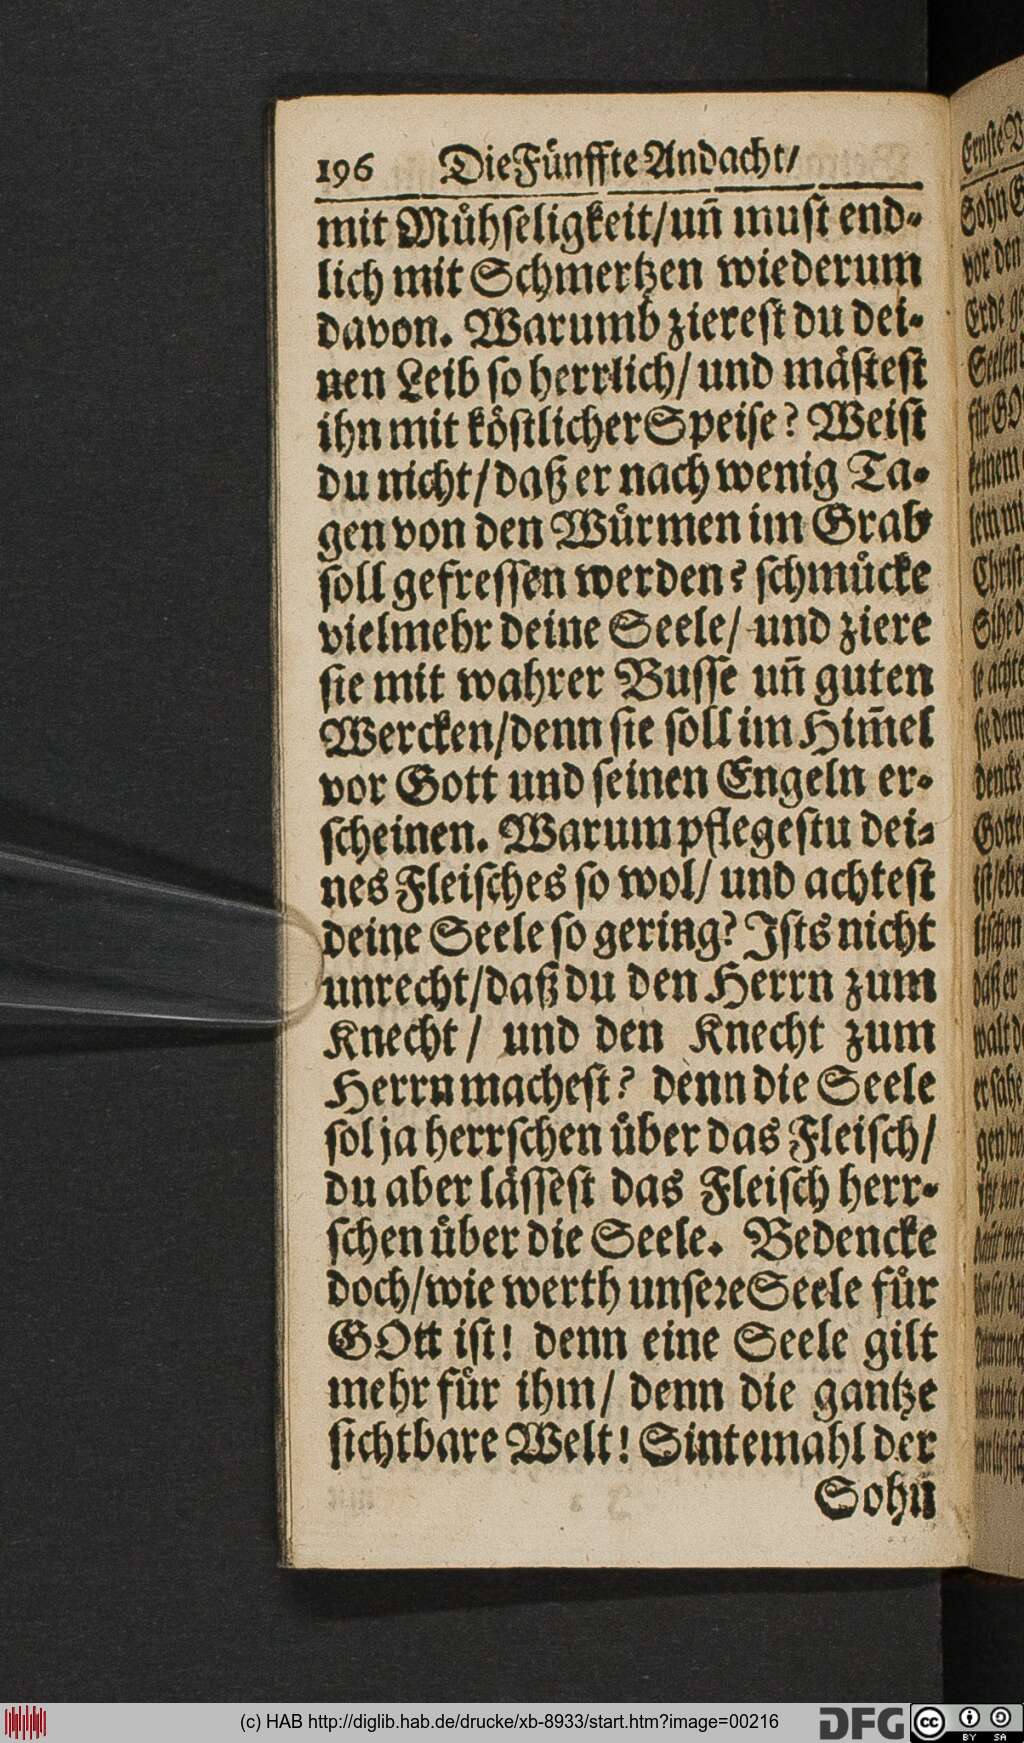 196 Die Fünffte Andacht/
mit Mühseligkeit/ un̄ must end⸗
lich mit Schmertzen wiederum
davon. Warumb zierest du dei⸗
nen Leib so herrlich/ und mästest
ihn mit köstlicher Speise? Weist
du nicht/ daß er nach wenig Ta⸗
gen von den Würmen im Grab
soll gefressen werden? schmücke
vielmehr deine Seele/ und ziere
sie mit wahrer Busse un̄ guten
Wercken/ denn sie soll im Him̄el
vor Gott und seinen Engeln er⸗
scheinen. Warum pflegestu dei⸗
nes Fleisches so wol/ und achtest
deine Seele so gering? Ists nicht
unrecht/ daß du den Herrn zum
Knecht/ und den Knecht zum
Herrn machest? denn die Seele
sol ja herrschen über das Fleisch/
du aber lässest das Fleisch herr⸗
schen über die Seele. Bedencke
doch/ wie werth unsere Seele für
GOtt ist! denn eine Seele gilt
mehr für ihm/ denn die gantze
sichtbare Welt! Sintemahl der
Sohn
Ernste
Sohn
vor den
Erde
Seelen
für
keinem
lein
Christ
sie denn
dencke
Gotte
lischen
daß er
walt
(c) HAB http://diglib.hab.de/drucke/xb-8933/start.htm?image=00216
DFG
cc BY SA